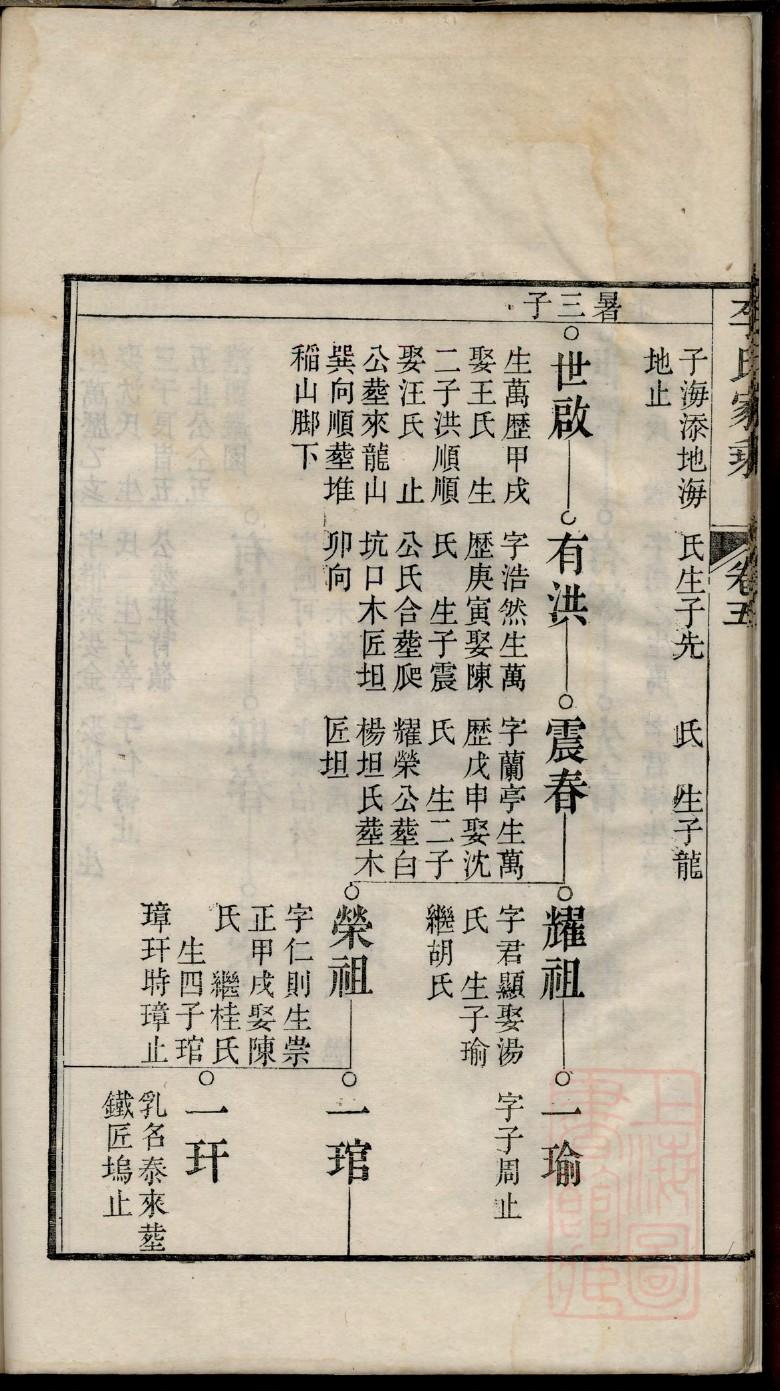 李氏家乘
卷五
子三暑
子海添地海
地止
氏生子先
氏　生子龍
世啟
生萬歷甲戌
娶王氏　生
二子洪順順
娶汪氏　止
公塟來龍山
巽向順塟堆
稲山脚下
有洪
字浩然生萬
歷庚寅娶陳
氏　生子震
公氏合塟爬
坑口木匠坦
卯向
震春
字蘭亭生萬
歷戊申娶沈
氏　生二子
耀榮公塟白
楊坦氏塟木
匠坦
耀祖
字君顯娶湯
氏　生子瑜
繼胡氏
一瑜
字子周止
榮祖
字仁則生崇
正甲戌娶陳
氏　繼桂氏
生四子琯
璋玕時璋止
一琯
一玕
乳名泰來塟
鐵匠塢止
上海圖書館藏